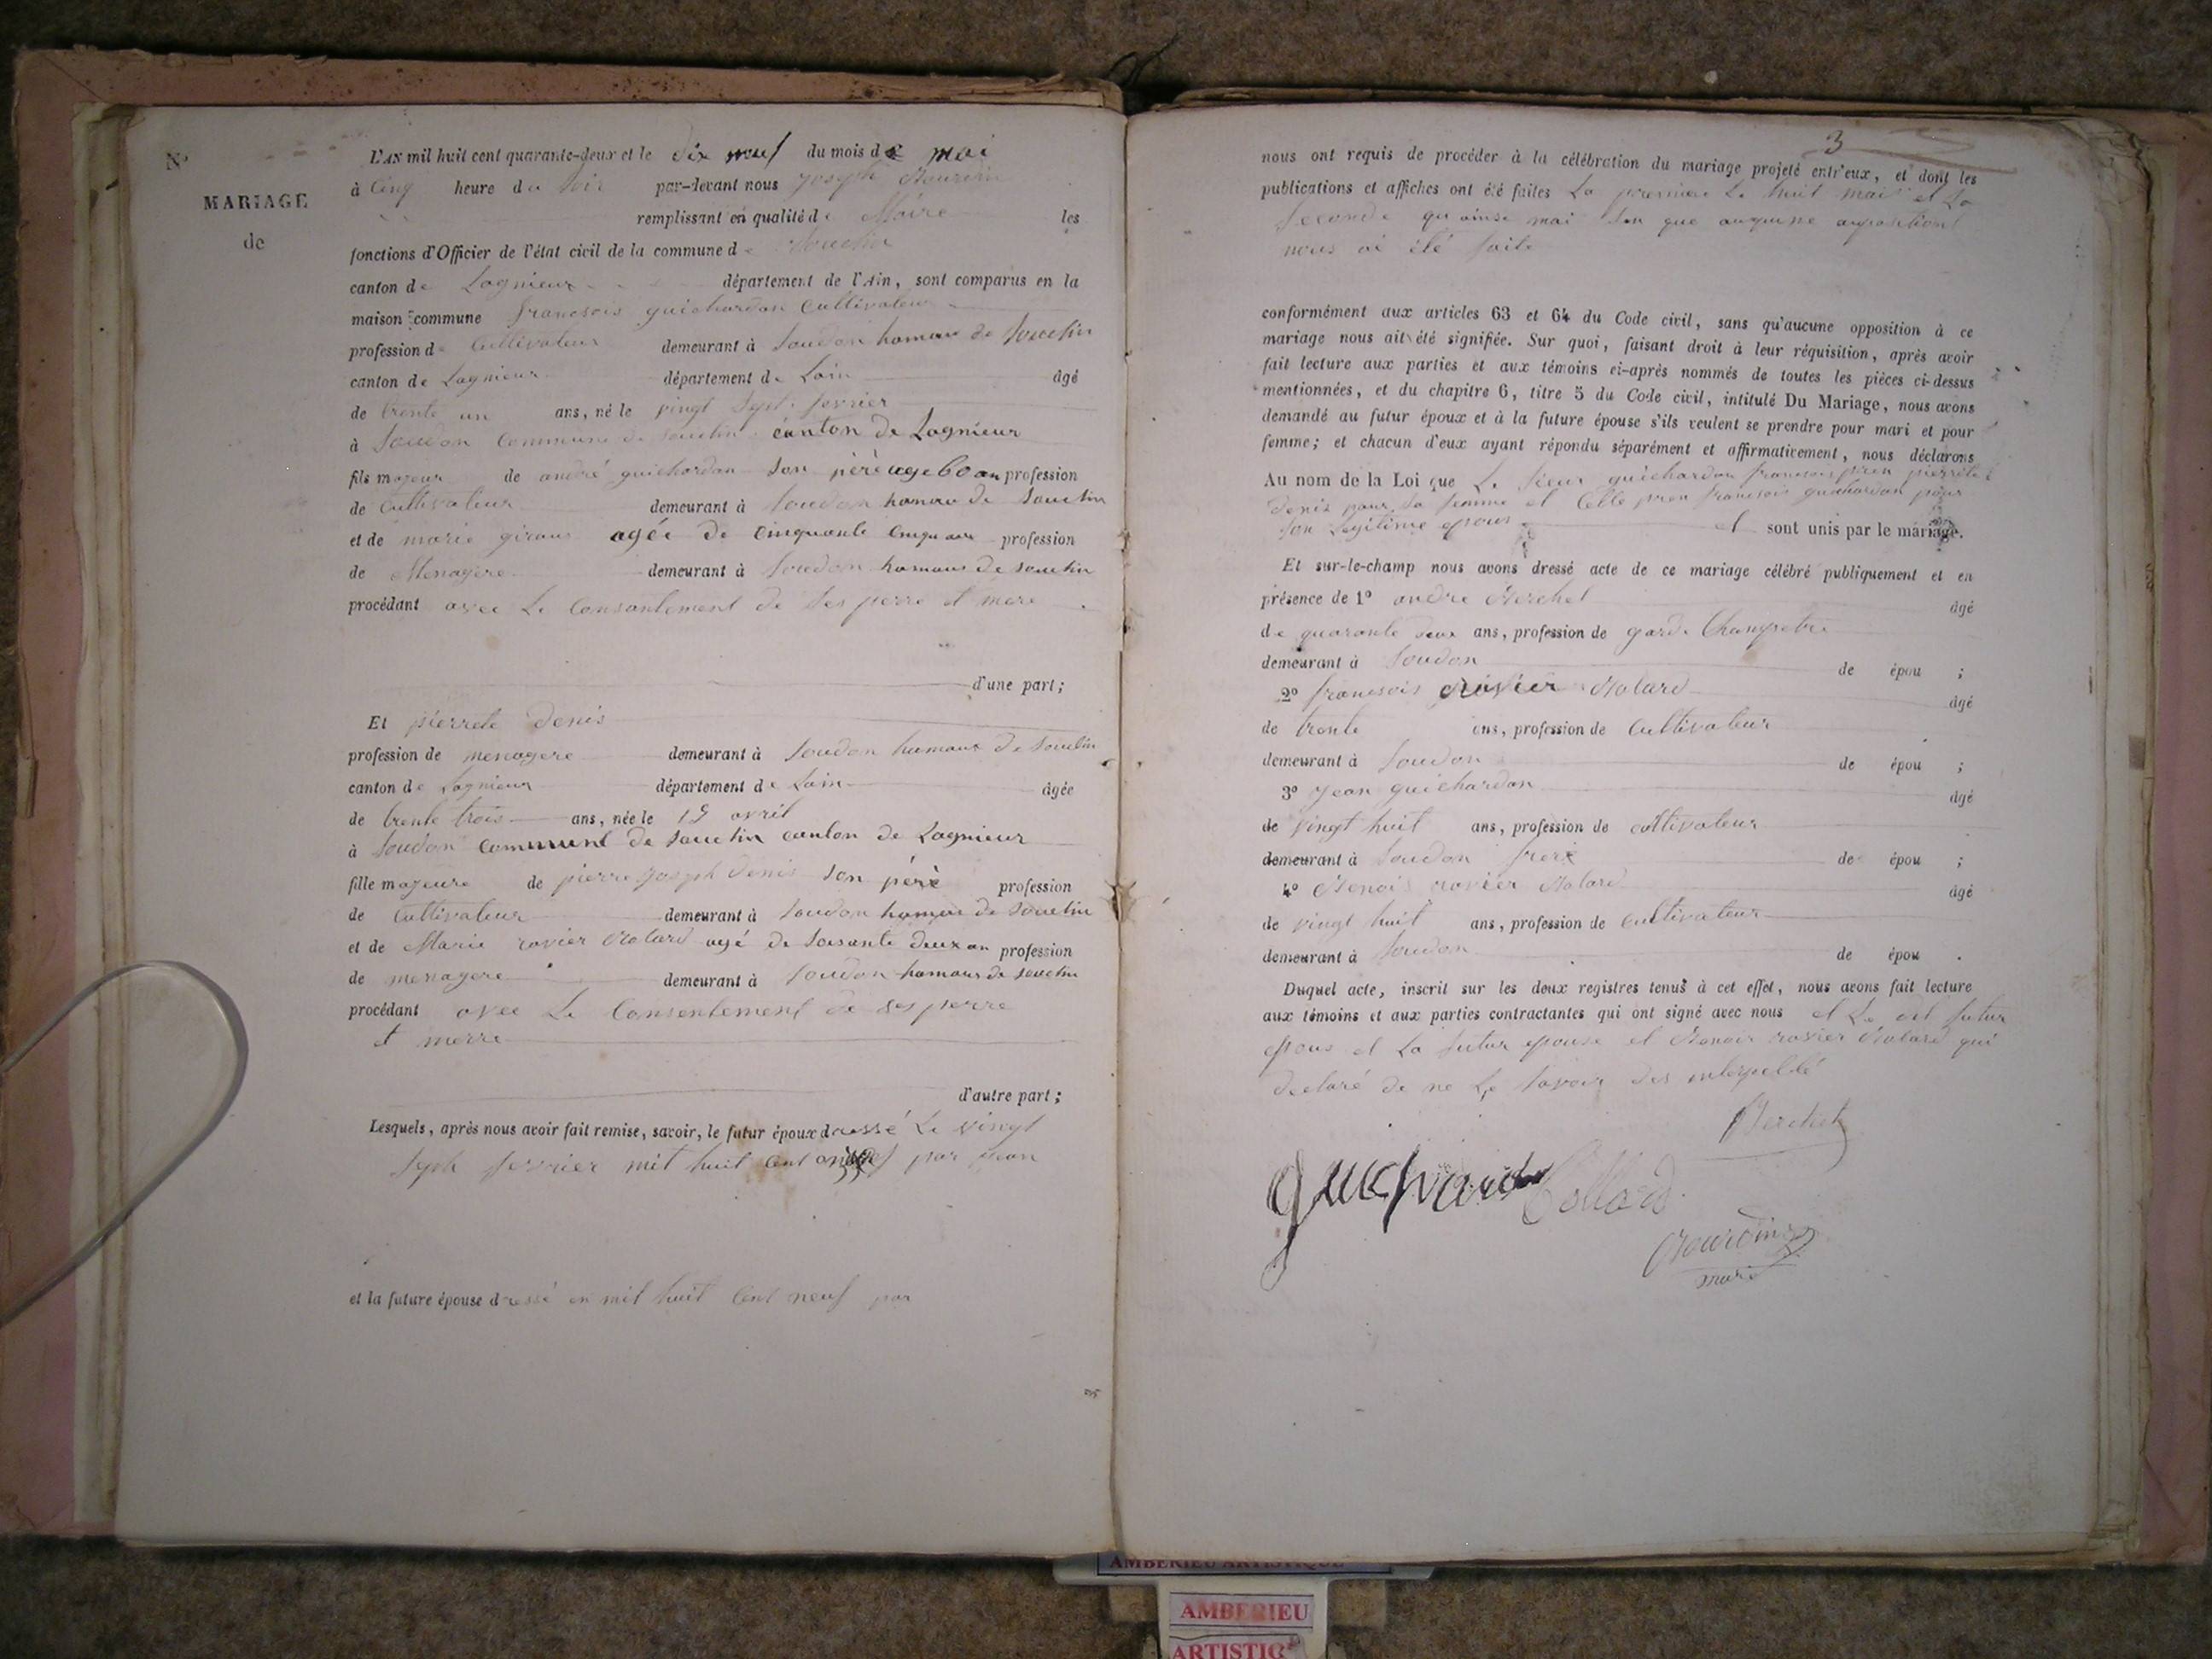 N°
MARIAGE
de
L'AN mil huit cent quarante-deux et le dix neuf du mois de mai
à cinq heure du soir par-devant nous joseph Bourdin
remplissant en qualité de Maire les
fonctions d'Officier de l'état civil de la commune de Souclin
canton de Lagnieux département de l'Ain, sont comparus en la
maison commune francsois guichardon Cultivateur
profession de Cultivateur demeurant à Soudon hamau de Souclin
canton de Lagnieux département de Lain âgé
de trente un ans, né le vingt sept fevrier
à Soudon Commune de souclin canton de Lagnieur
fils majeur de andré guichardon son père age 60 an profession
de Cultivateur demeurant à Soudon hamau de Souclin
et de marie giraud agée de cinquante cinq ans profession
de Menagere demeurant à Soudon hamaus de souclin
procédant avec Le Consantement de ses perre et mere
d'une part;
Et pierrete denis
profession de menagere demeurant à Soudon hamaus de souclin
canton de Lagnieur département de Lain âgée
de trente trois ans, née le 15 avril
à Soudon commune de souclin canton de Lagnieur
fille majeure de pierre joseph denis son père profession
de Cultivateur demeurant à Soudon hamau de Souclin
et de Marie ravier Molard agé de soisante deux an profession
de menagere demeurant à Soudon hamaus de souclin
procédant avec Le Consentement de ses perre
et merre
d'autre part;
Lesquels, après nous avoir fait remise, savoir, le futur époux dressé Le vingt
seph fevrier mil huit cent par jean
et la future épouse dressé en mil huit Cent neuf par
3
nous ont requis de procéder à la célébration du mariage projeté entr'eux, et dont les
publications et affiches ont été faites La premiere Le huit mai et La
seconde quainse mai san que auqune aupositiont
nous ai été faite
conformément aux articles 63 et 64 du Code civil, sans qu'aucune opposition à ce
mariage nous ait été signifiée. Sur quoi, faisant droit à leur réquisition, après avoir
fait lecture aux parties et aux témoins ci-après nommés de toutes les pièces ci-dessus
mentionnées, et du chapitre 6, titre 5 du Code civil, intitulé Du Mariage, nous avons
demandé au futur époux et à la future épouse s'ils veulent se prendre pour mari et pour
femme; et chacun d'eux ayant répondu séparément et affirmativement, nous déclarons
Au nom de la Loi que Le sieur guichardon francsois pren pierrete
denis pour sa femme et Celle pren francsois guichardon pour
son Legitime epous et sont unis par le mariage.
Et sur-le-champ nous avons dressé acte de ce mariage célébré publiquement et en
présence de 1° andre Berchet âgé
de quarante deux ans, profession de garde Champetre
demeurant à Soudon de épou ;
2° francsois ravier Molard âgé
de trente ans, profession de Cultivateur
demeurant à Soudon de épou ;
3° jean guichardon âgé
de vingt huit ans, profession de cultivateur
demeurant à Soudon frere de épou ;
4° Benois ravier Molard âgé
de vingt huit ans, profession de Cultivateur
demeurant à Soudon de épou .
Duquel acte, inscrit sur les deux registres tenus à cet effet, nous avons fait lecture
aux témoins et aux parties contractantes qui ont signé avec nous et Le dit futur
epous et La futur epouse et Benois ravier Molard qui
declaré de ne Le savoir des interpellé
Berchet
guichardon Collard
Bourdin
maire
AMBERIEU ARTISTIQUE
AMBERIEU
ARTISTIQ